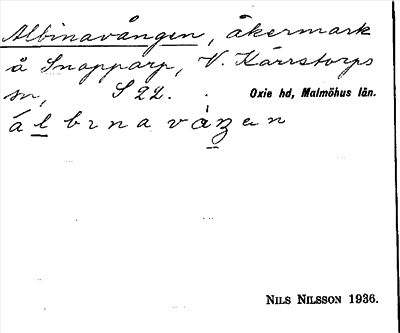 Albinavången, åkermark
å Snapparp, V. Kärrstorps
sn, S22. Oxie hd, Malmöhus län.
NILS NILSSON 1936.